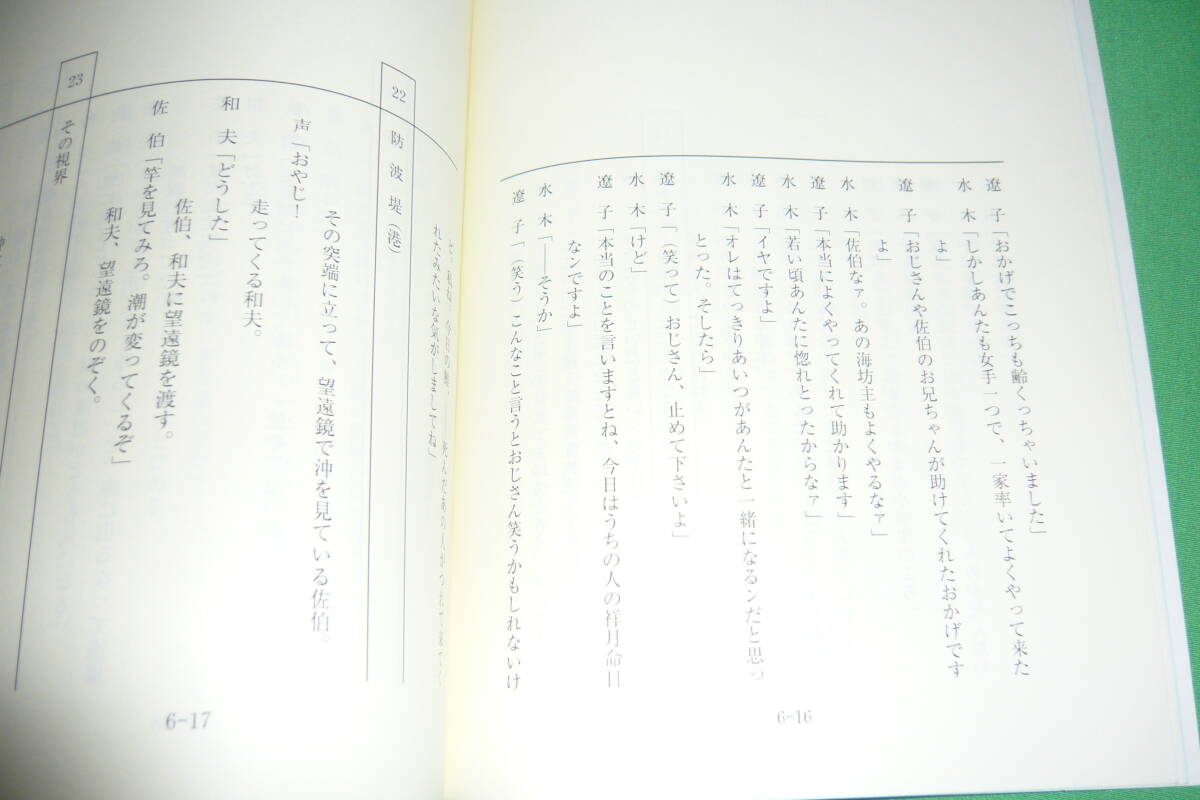 遼子「おかげでこっちも齢くっちゃいました」
水木「しかしあんたも女手一つで、一家率いてよくやって来た
よ」
遼子「おじさんや佐伯のお兄ちゃんが助けてくれたおかげです
よ」
水木「佐伯なァ。あの海坊主もよくやるなァ」
遼子「本当によくやってくれて助かります」
水木「若い頃あんたに惚れとったからなァ」
遼子「イヤですよ」
水木「オレはてっきりあいつがあんたと一緒になるンだと思っ
とった。そしたら」
遼子「(笑って)おじさん、止めて下さいよ」
水木「けど」
遼子「本当のことを言いますとね、今日はうちの人の祥月命日
なンですよ」
水木「――そうか」
遼子「(笑う)こんなこと言うとおじさん笑うかもしれないけ
6-16
と、私ね、今日の鯨、死んだあの人がつれて来てく
れたみたいな気がしましてね」
22 防波堤(港)
その突端に立って、望遠鏡で沖を見ている佐伯。
声「おやじ!
走ってくる和夫。
和夫「どうした」
佐伯、和夫に望遠鏡を渡す。
佐伯「竿を見てみろ。潮が変ってくるぞ」
和夫、望遠鏡をのぞく。
23 その視界
6-17